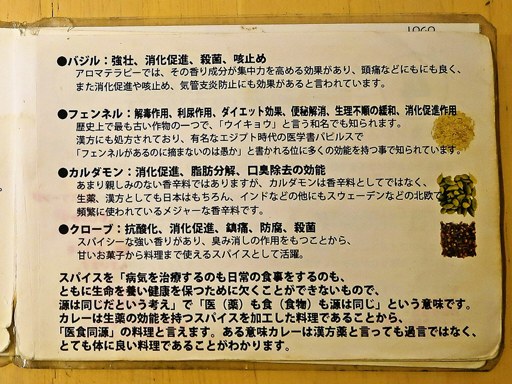 LOGO
●バジル：強壮、消化促進、殺菌、咳止め
アロマテラピーでは、その香り成分が集中力を高める効果があり、頭痛などにもにも良く、
また消化促進や咳止め、気管支炎防止にも効果があると言われています。
●フェンネル：解毒作用、利尿作用、ダイエット効果、便秘解消、生理不順の緩和、消化促進作用
歴史上で最も古い作物の一つで、「ウイキョウ」と言う和名でも知られます。
漢方にも処方されており、有名なエジプト時代の医学書パピルスで
「フェンネルがあるのに摘まないのは愚か」と書かれる位に多くの効能を持つ事で知られています。
●カルダモン：消化促進、脂肪分解、口臭除去の効能
あまり親しみのない香辛料ではありますが、カルダモンは香辛料としてではなく、
生薬、漢方としても日本はもちろん、インドなどの他にもスウェーデンなどの北欧で
頻繁に使われているメジャーな香辛料です。
●クローブ：抗酸化、消化促進、鎮痛、防腐、殺菌
スパイシーな強い香りがあり、臭み消しの作用をもつことから、
甘いお菓子から料理まで使えるスパイスとして活躍。
スパイスを「病気を治療するのも日常の食事をするのも、
ともに生命を養い健康を保つために欠くことができないもので、
源は同じだという考え」で「医（薬）も食（食物）も源は同じ」という意味です。
カレーは生薬の効能を持つスパイスを加工した料理であることから、
「医食同源」の料理と言えます。ある意味カレーは漢方薬と言っても過言ではなく、
とても体に良い料理であることがわかります。